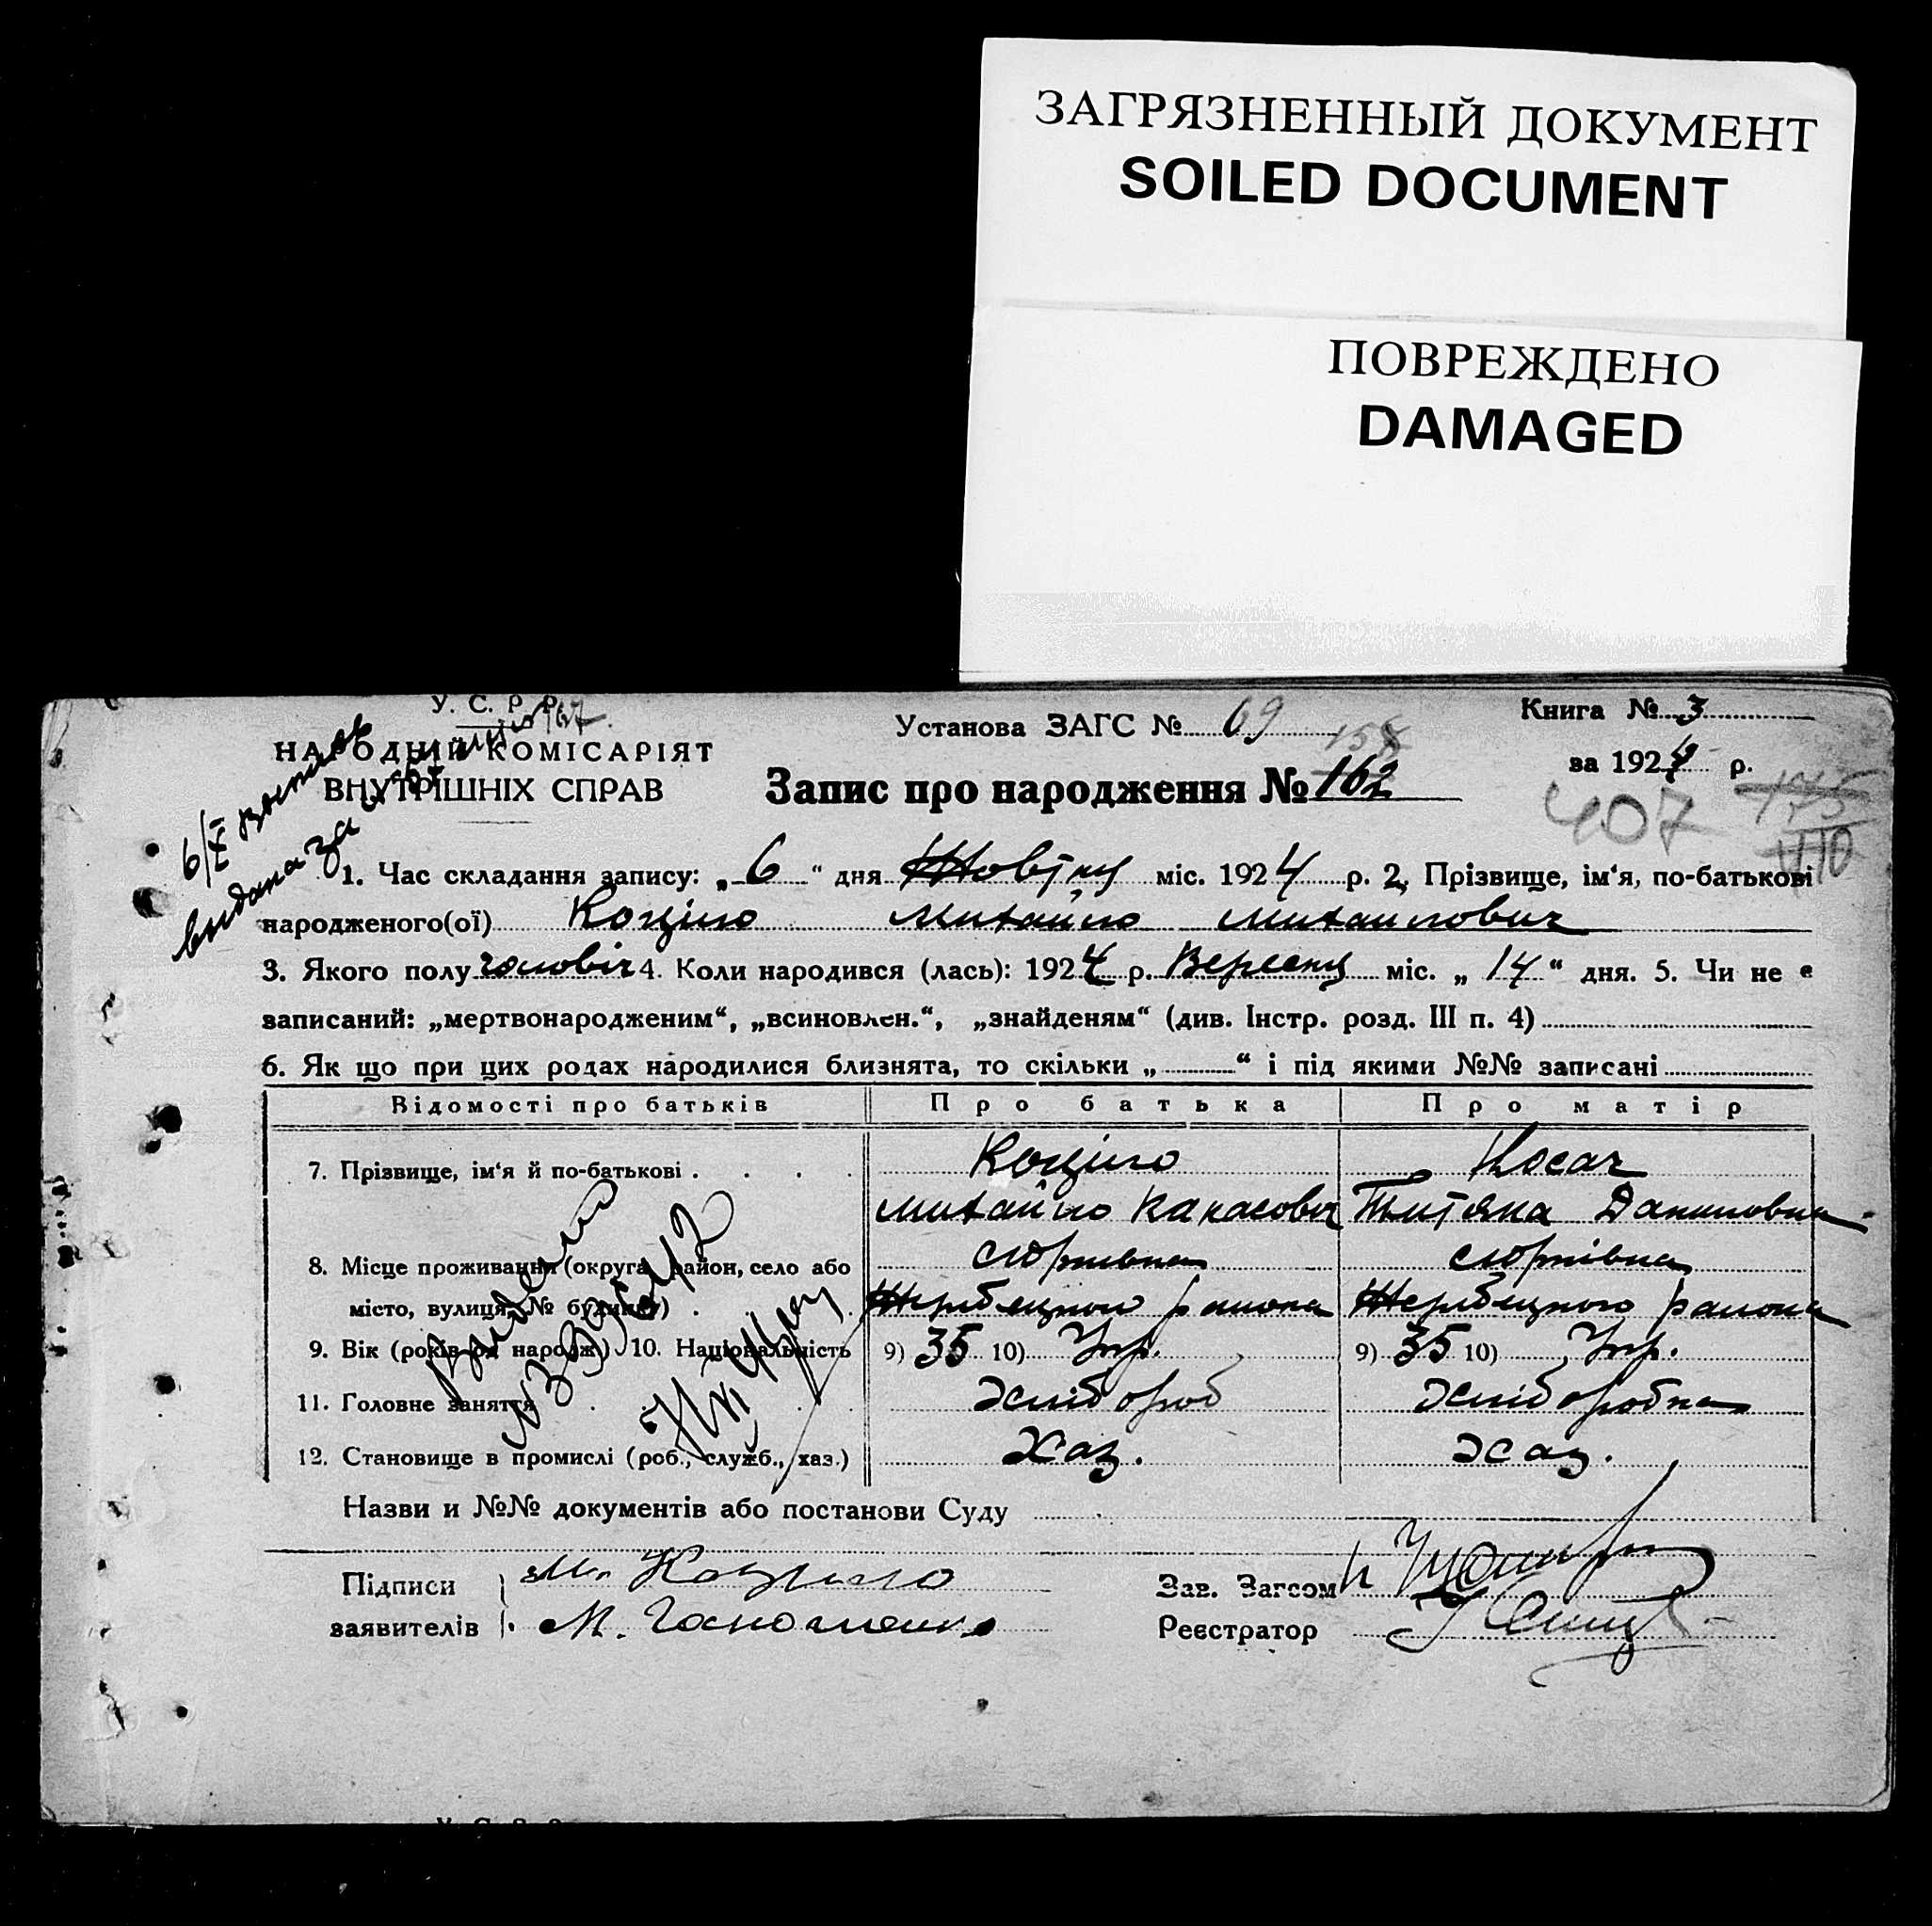 ЗАГРЯЗНЕННЫЙ ДОКУМЕНТ
SOILED DOCUMENT
ПОВРЕЖДЕНО
DAMAGED
У. С. Р. Р.
НАРОДНІЙ КОМІСАРІЯТ
ВНУТРІШНІХ СПРАВ
Установа ЗАГС № 69
Книга № 3
за 1924 р.
158
Запис про народження № 162
407 175
6/X
видана за
1. Час складання запису: „ 6 “ дня Жовтня міс. 1924 р. 2. Прізвище, ім‘я, по-батькові
народженого(ої) Коціло Михайло Михайлович
3. Якого полу чоловіч 4. Коли народився (лась): 1924 р. Вересня міс. „ 14 “ дня. 5. Чи не є
записаний: „мертвонародженим“, „всиновлен.“, „знайденям“ (див. Інстр. розд. III п. 4)
6. Як що при цих родах народилися близнята, то скільки „ “ і під якими №№ записані
Відомості про батьків Про батька Про матір
7. Прізвище, ім‘я й по-батькові Коціло Косач
Михайло Титяна Даниловна
8. Місце проживання (округа, район, село або
місто, вулиця, № будинку) района района
9. Вік (років од народж.) 10. Національність 9) 35 10) Укр. 9) 35 10) Укр.
11. Головне заняття хлібороб хліборобка
12. Становище в промислі (роб., служб., хаз.) Хаз. хаз.
Назви и №№ документів або постанови Суду
Підписи
заявителів
М. Коціло
М.
Зав. Загсом
Реєстратор